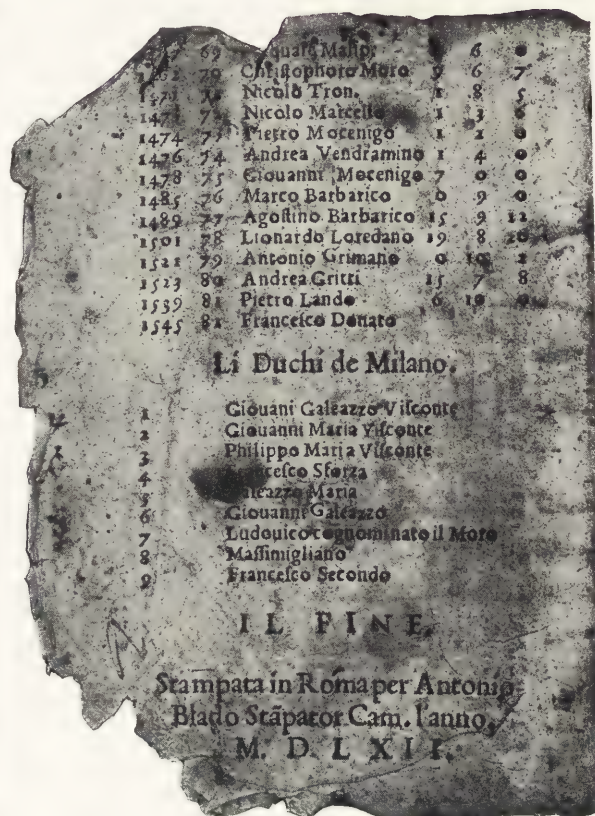 69 Mallp. 1 6 0
70 Christophoro Moro 9 6 7
Nicolò Tron. 1 8 5
Nicolo Marcello 1 3
Pietro Mocenigo 1 2 0
1476 74 Andrea Vendramino 1 4 0
1478 75 Giouanni Mocenigo 7 0 0
1485 76 Marco Barbarico 0 9 0
1489 77 Agoſtino Barbarico 15 9 12
1501 78 Lionardo Loredano 19 8 20
1521 79 Antonio Grimano 0 10 2
1523 80 Andrea Gritti 15 7 8
1539 81 Pietro Lando 6 10 0
1545 82 Franceſco Donato
Li Duchi de Milano.
1 Giouani Galeazzo Viſconte
2 Giouanni Maria Viſconte
3 Philippo Maria Viſconte
4 Franceſco Sforza
5 Galeazzo Maria
6 Giouanni Galeazzo
7 Ludouico cognominato il Moro
8 Maſſimigliano
9 Franceſco Secondo
IL FINE.
Stampata in Roma per Antonio
Blado Stãpator Cam. l'anno.
M. D. L XII.